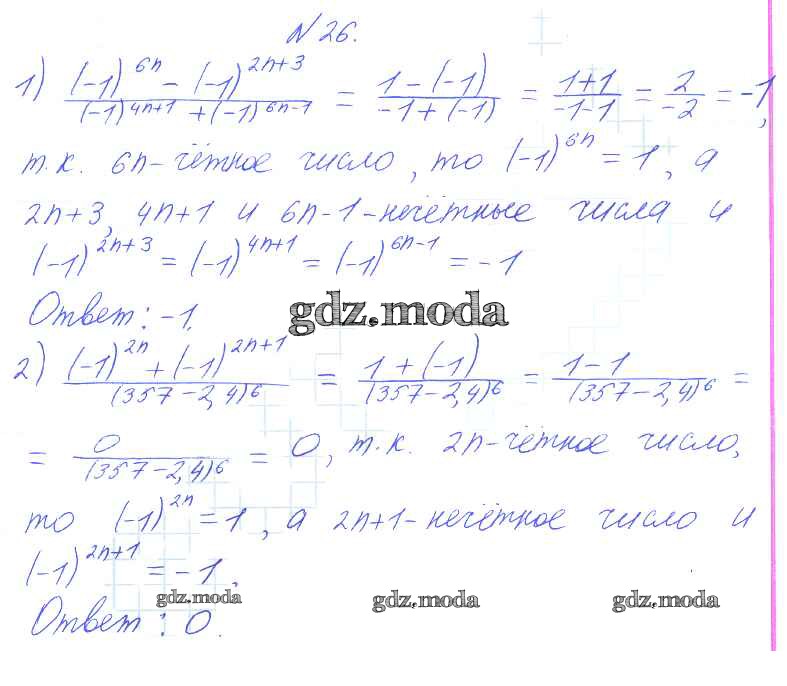 N 26.
1) ((-1)^6n - (-1)^2n+3) / ((-1)^4n+1 + (-1)^6n-1) = (1-(-1)) / (-1+(-1)) = (1+1) / (-1-1) = 2 / -2 = -1,
т.к. 6n-чётное число, то (-1)^6n = 1, а
2n+3, 4n+1 и 6n-1-нечётные числа и
(-1)^2n+3 = (-1)^4n+1 = (-1)^6n-1 = -1
Ответ: -1.
gdz.moda
2) ((-1)^2n + (-1)^2n+1) / (357-2,4)^6 = (1+(-1)) / (357-2,4)^6 = (1-1) / (357-2,4)^6 =
= 0 / (357-2,4)^6 = 0, т.к. 2n-чётное число,
то (-1)^2n = 1, а 2n+1-нечётное число и
(-1)^2n+1 = -1,
gdz.moda gdz.moda gdz.moda
Ответ: 0.